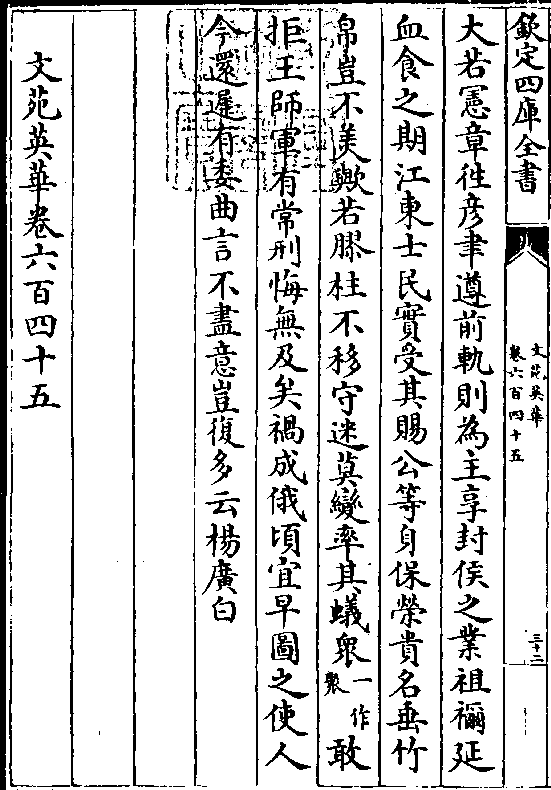 欽定四庫全書
文苑英華
卷六百四十五
三十二
大若憲章徃彦聿遵前軌則為主享封侯之業祖禰延
血食之期江東士民實受其賜公等身保榮貴名垂竹
帛豈不美歟若膠柱不移守迷莫變率其蟻衆一作聚敢
拒王師軍有常刑悔無及矣禍成俄頃宜早圖之使人
今還遲有委曲言不盡意豈復多云楊廣白
文苑英華卷六百四十五